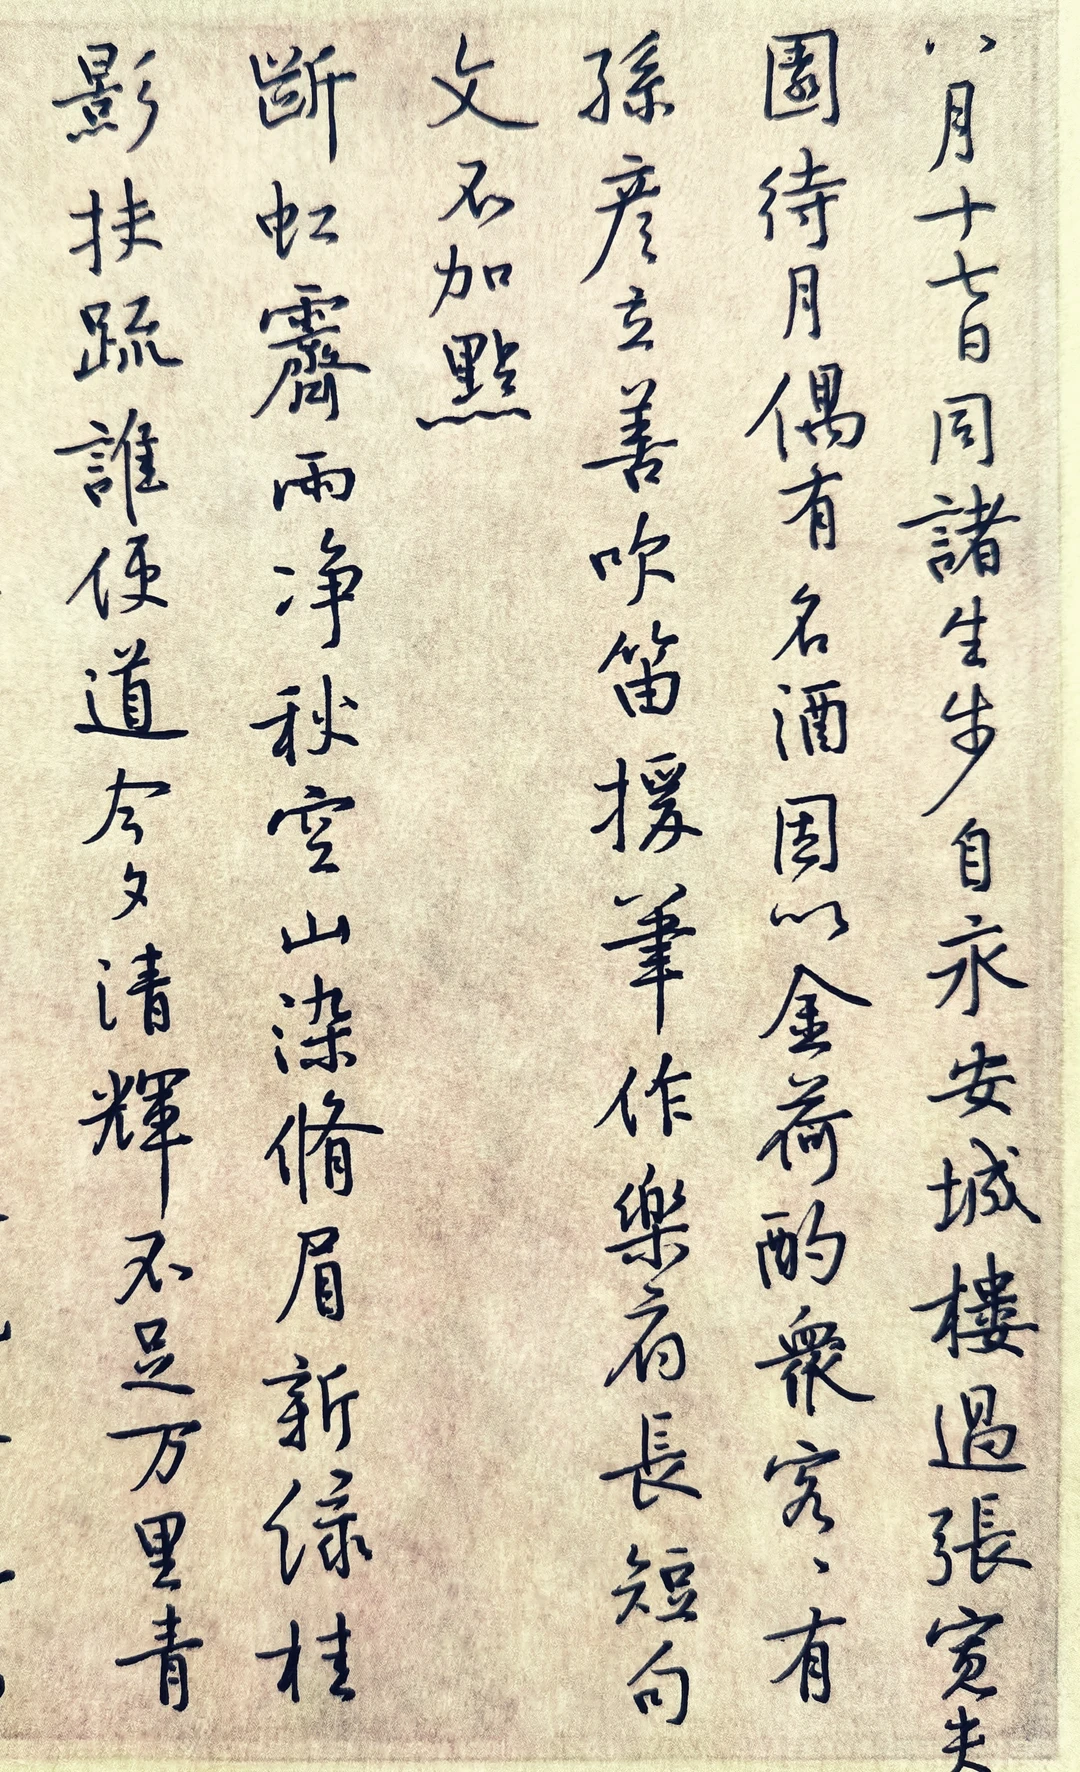 八月十七日同諸生步自永安城樓過張寬夫
園待月偶有名酒因以金荷酌衆客、有
孫彦立善吹笛援筆作樂府長短句
文不加點
斷虹霽雨净秋空山染脩眉新緑桂
影扶疏誰便道今夕清輝不足万里青